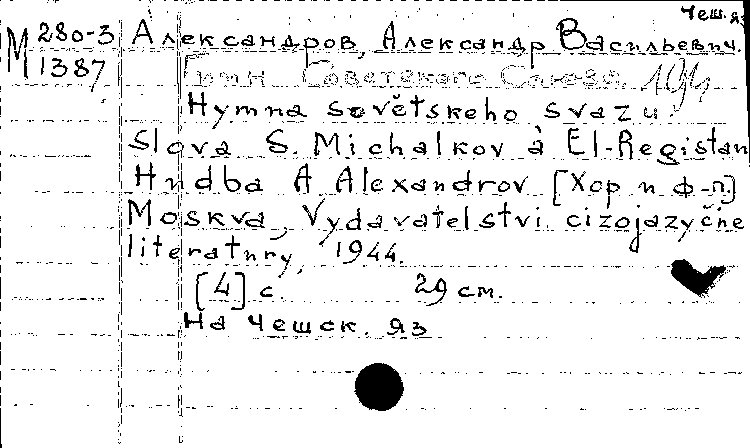 Чеш. яз
М 280-3
1387
Александров, Александр Васильевич.
Гимн Советского Союза. 1944
Hymna sovětskeho svazu.
Slova S. Michalkov à El-Registan
Hudba A Alexandrov [Хор и ф-п.]
Moskva, Vydavatelstvi cizojazyčne
literatury, 1944.
[4] с. 29 см.
На чешск. яз